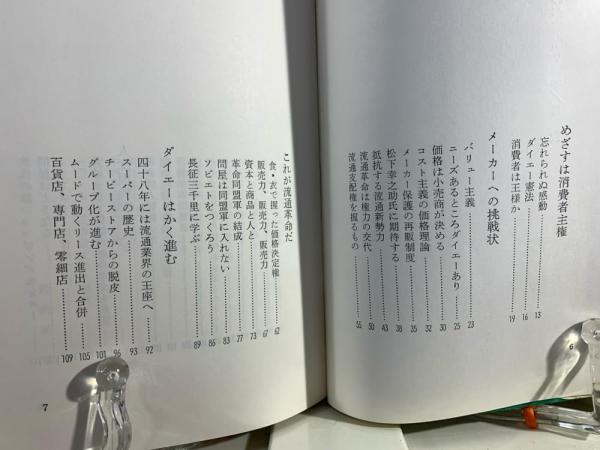 めざすは消費者主権
忘れられぬ感動……13
ダイエー憲法……16
消費者は王様か……19
メーカーへの挑戦状
バリュー主義……23
ニーズあるところダイエーあり……25
価格は小売商が決める……30
コスト主義の価格理論……32
メーカー保護の再販制度……35
松下幸之助氏に期待する……38
抵抗する流通新勢力……43
流通革命は権力の交代……50
流通支配権を握るもの……55
6
これが流通革命だ
食・衣で握った価格決定権……62
販売力、販売力、販売力……67
資本と商品と人と……73
革命同盟軍の結成……77
問屋は同盟軍に入れない……83
ソビエトをつくろう……86
長征三千里に学ぶ……89
ダイエーはかく進む
四十八年には流通業界の王座へ……92
スーパーの歴史……93
チーピーストアからの脱皮……96
グループ化が進む……101
ムードで動くリース進出と合併……105
百貨店、専門店、零細店……109
7